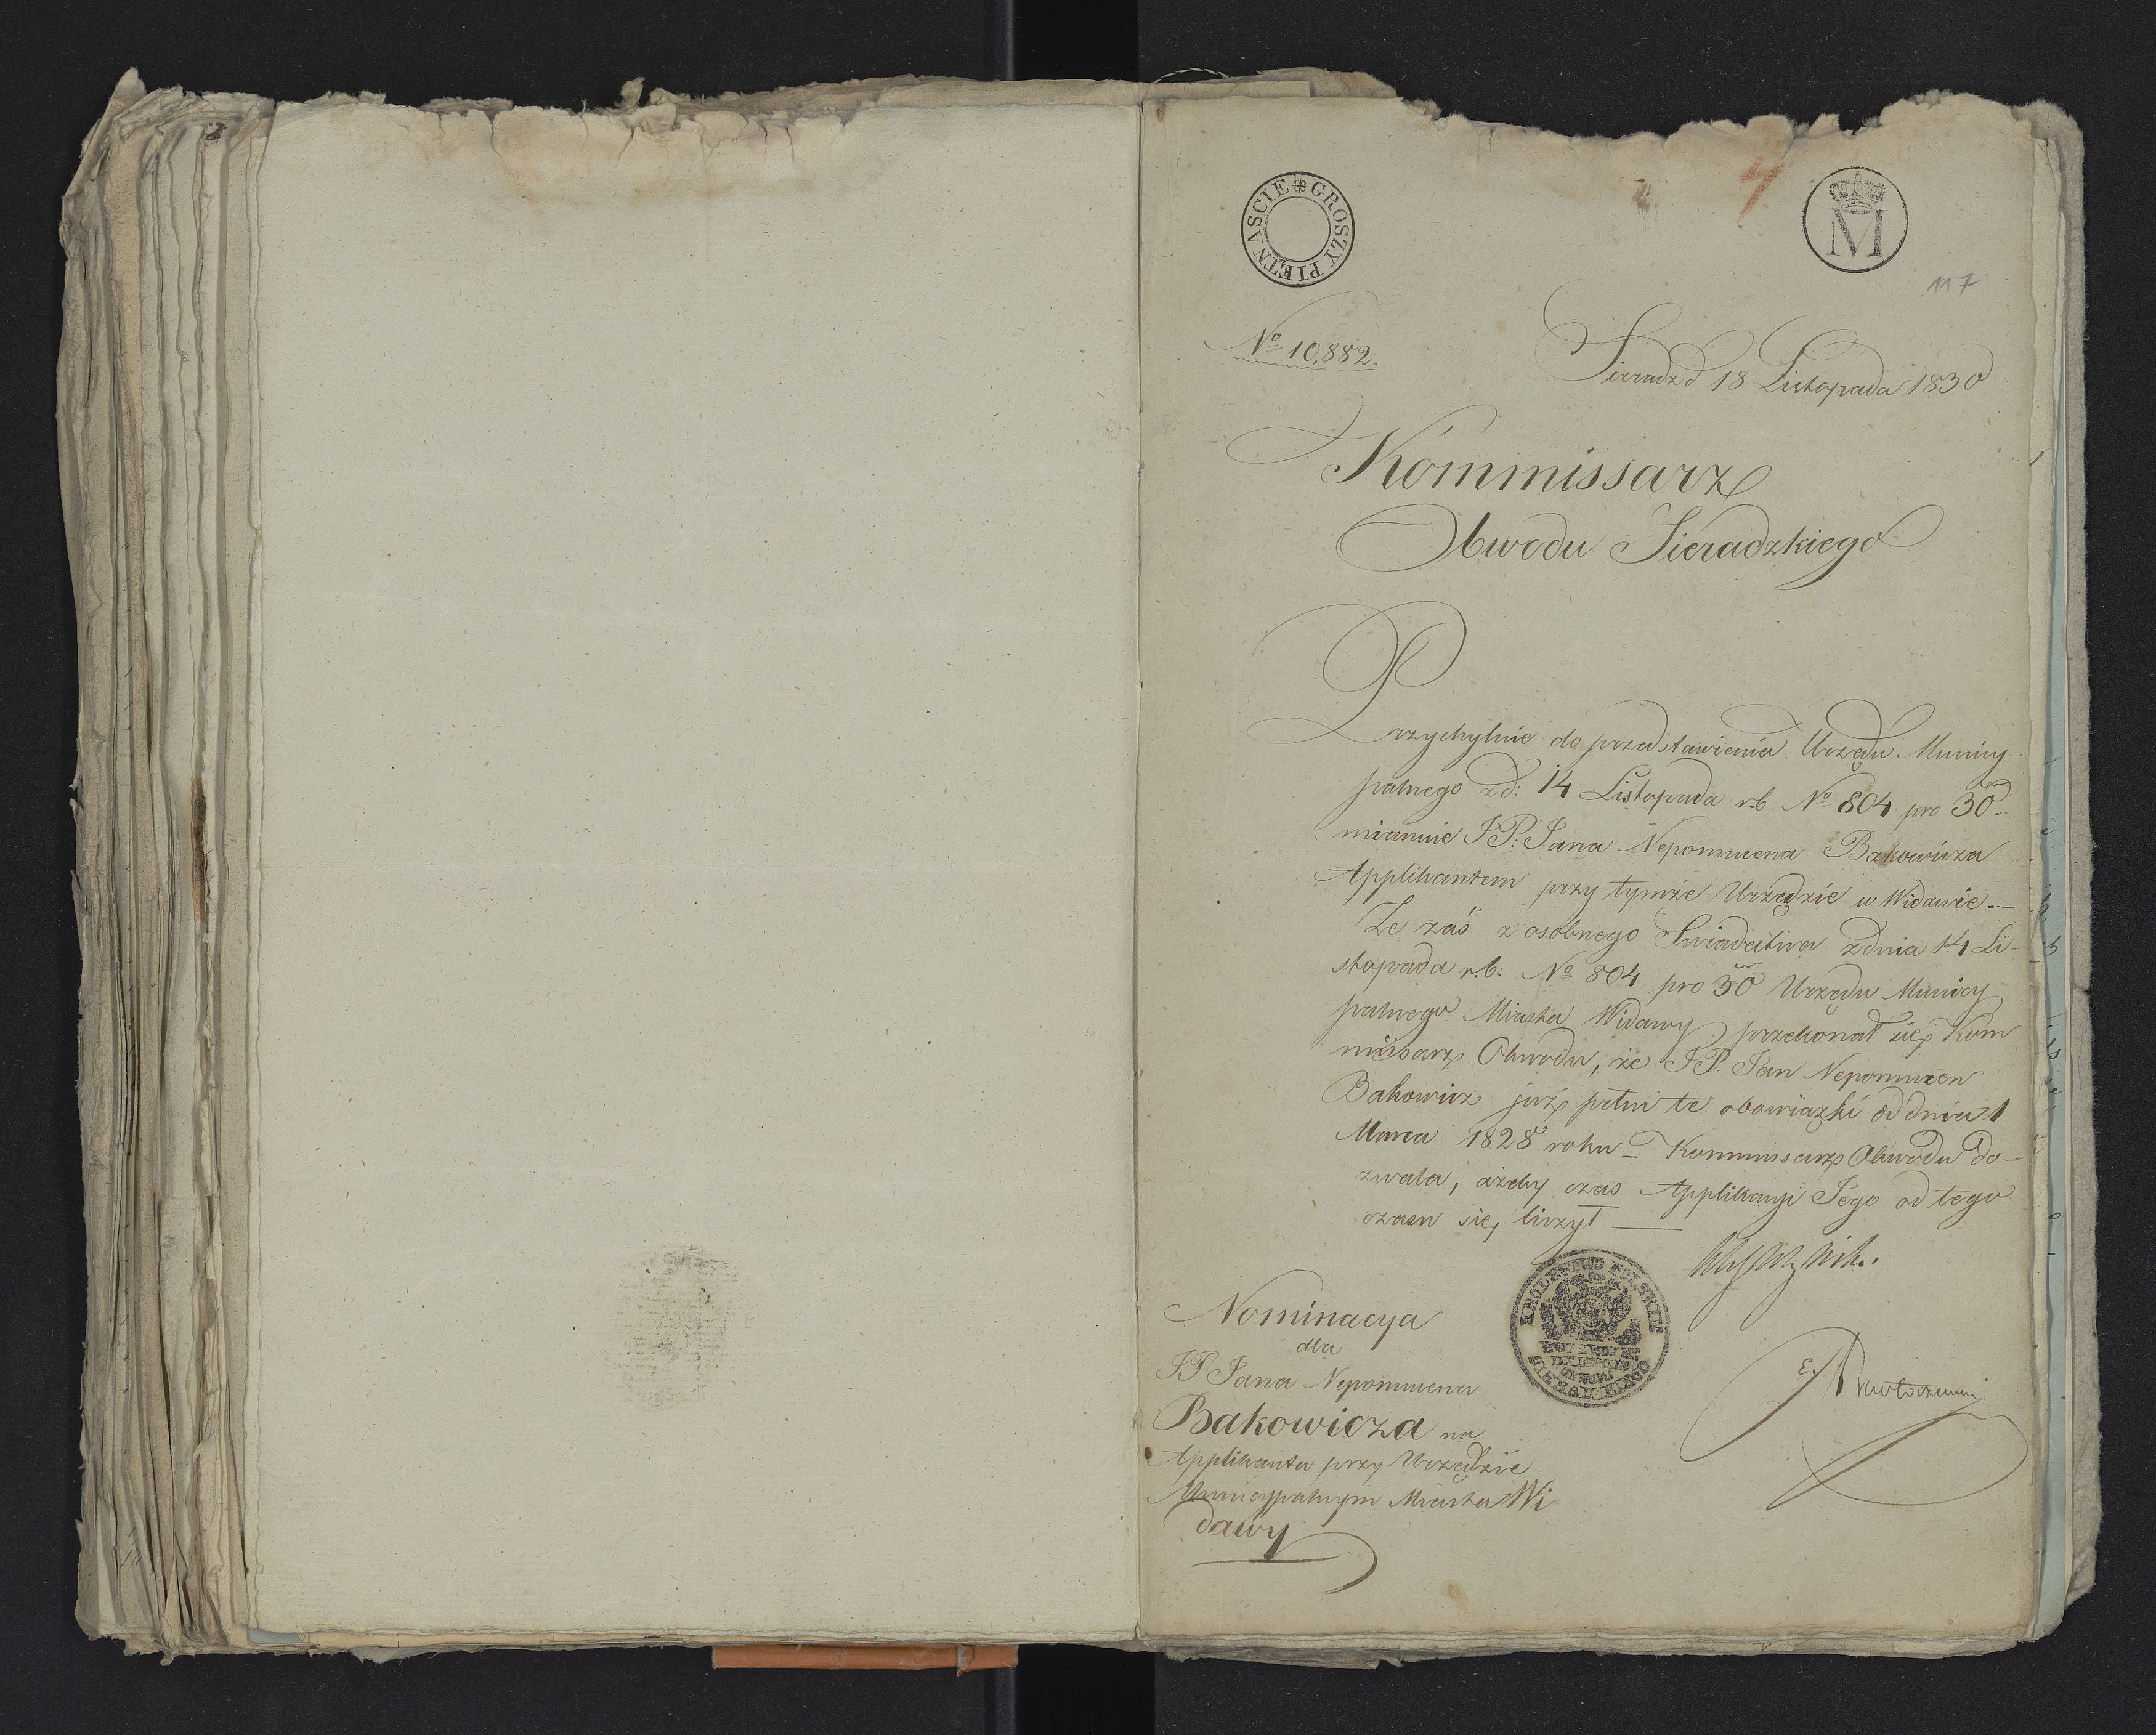 GROSZY PIĘTNAŚCIE
M
117
No 10,882.
Sieradz d 18 Listopada 1830
Kommissarz
Obwodu Sieradzkiego
Przychylnie do przedstawienia Urzędu Municy-
palnego z d: 14 Listopada r.b. No 804 pro 30
mianuie JP: Jana Nepomucena Bakowicza
Applikantem przy tymże Urzędzie w Widawie.—
Że zaś z osobnego Swiadectwa z dnia 14 Li-
stopada r.b: No 804 pro 30 Urzędu Municy
palnego Miasta Widawy przekonał się Kom
missarz Obwodu, że JP. Jan Nepomucen
Bakowicz już pełni te obowiązki od dnia 1
Marca 1828 roku — Kommissarz Obwodu do-
zwala, ażeby czas Applikacyi Jego od tego
czasu się liczył —
KROLESTWO POLSKIE
SIERADZKIEGO
Nominacya
dla
JP Jana Nepomucena
Bakowicza na
Applikanta przy Urzędzie
Municypalnym Miasta Wi
dawy